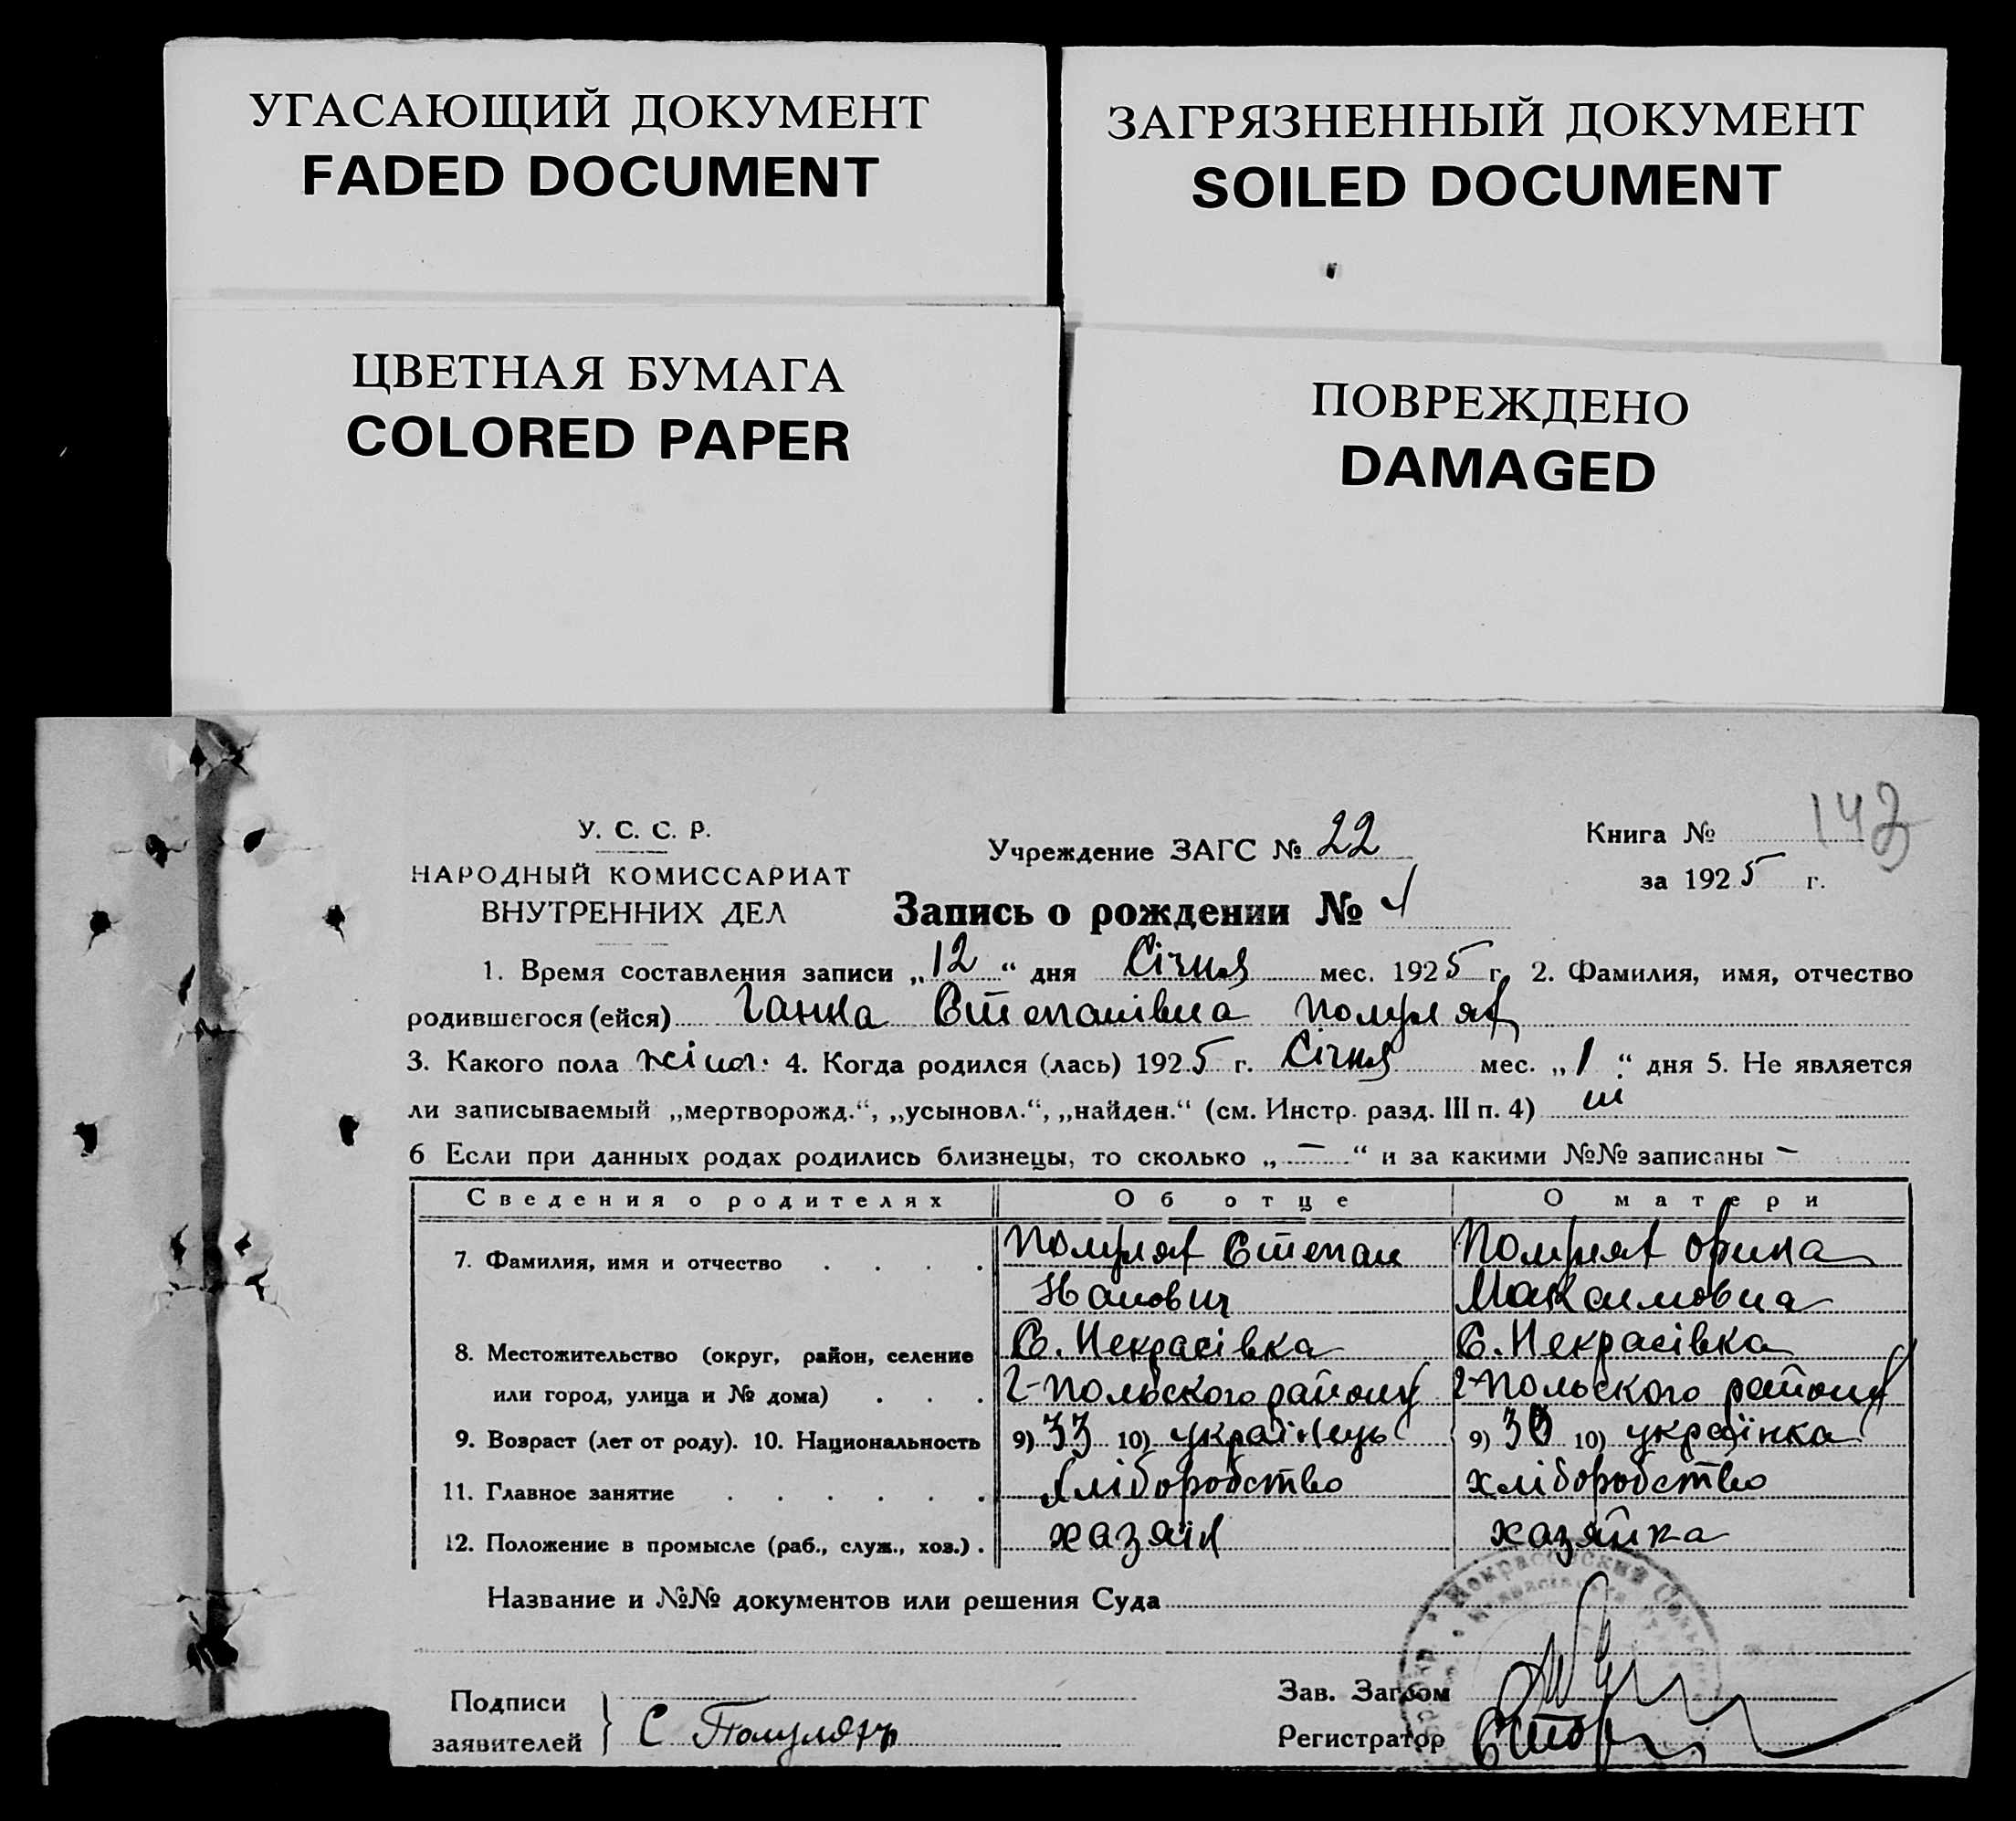 УГАСАЮЩИЙ ДОКУМЕНТ
FADED DOCUMENT
ЗАГРЯЗНЕННЫЙ ДОКУМЕНТ
SOILED DOCUMENT
ЦВЕТНАЯ БУМАГА
COLORED PAPER
ПОВРЕЖДЕНО
DAMAGED
У. С. С. Р.
НАРОДНЫЙ КОМИССАРИАТ
ВНУТРЕННИХ ДЕЛ
Учреждение ЗАГС № 22
Книга № 142
за 1925 г.
Запись о рождении № 4
1. Время составления записи „12“ дня Січня мес. 1925 г. 2. Фамилия, имя, отчество
родившегося (ейся) Ганна Степанівна Полулях
3. Какого пола жіноч. 4. Когда родился (лась) 1925 г. Січня мес. „1“ дня 5. Не является
ли записываемый „мертворожд.“, „усыновл.“, „найден.“ (см. Инстр. разд. III п. 4) ні
6 Если при данных родах родились близнецы, то сколько „—“ и за какими №№ записаны —
Сведения о родителях Об отце О матери
7. Фамилия, имя и отчество . . . . Полулях Степан Полулях Орина
Іванович Максимовна
8. Местожительство (округ, район, селение С. Некрасівка С. Некрасівка
или город, улица и № дома) . . . Г-Польского району Г-Польского району
9. Возраст (лет от роду). 10. Национальность 9) 33 10) українець 9) 30 10) українка
11. Главное занятие . . . . . . хліборобство хліборобство
12. Положение в промысле (раб., служ., хоз.) . хазяїн хазяйка
Название и №№ документов или решения Суда
Подписи
заявителей } С Полуляхъ
Зав. Загсом
Регистратор